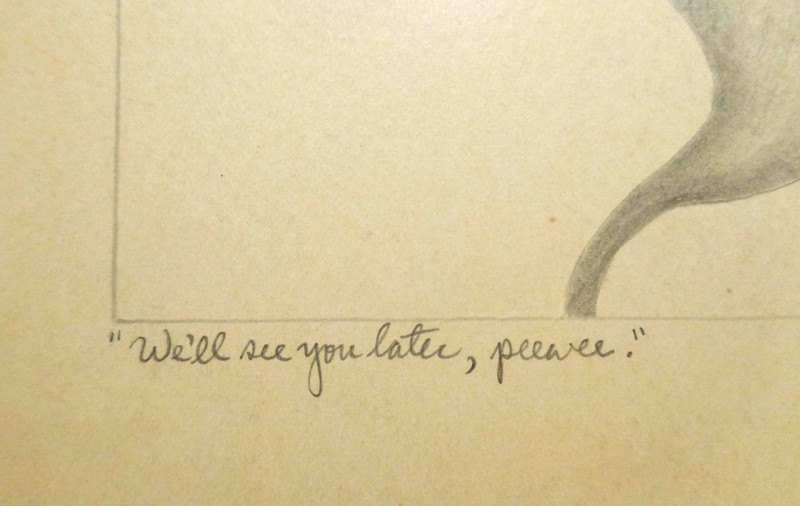 "We'll see you later, peewee."